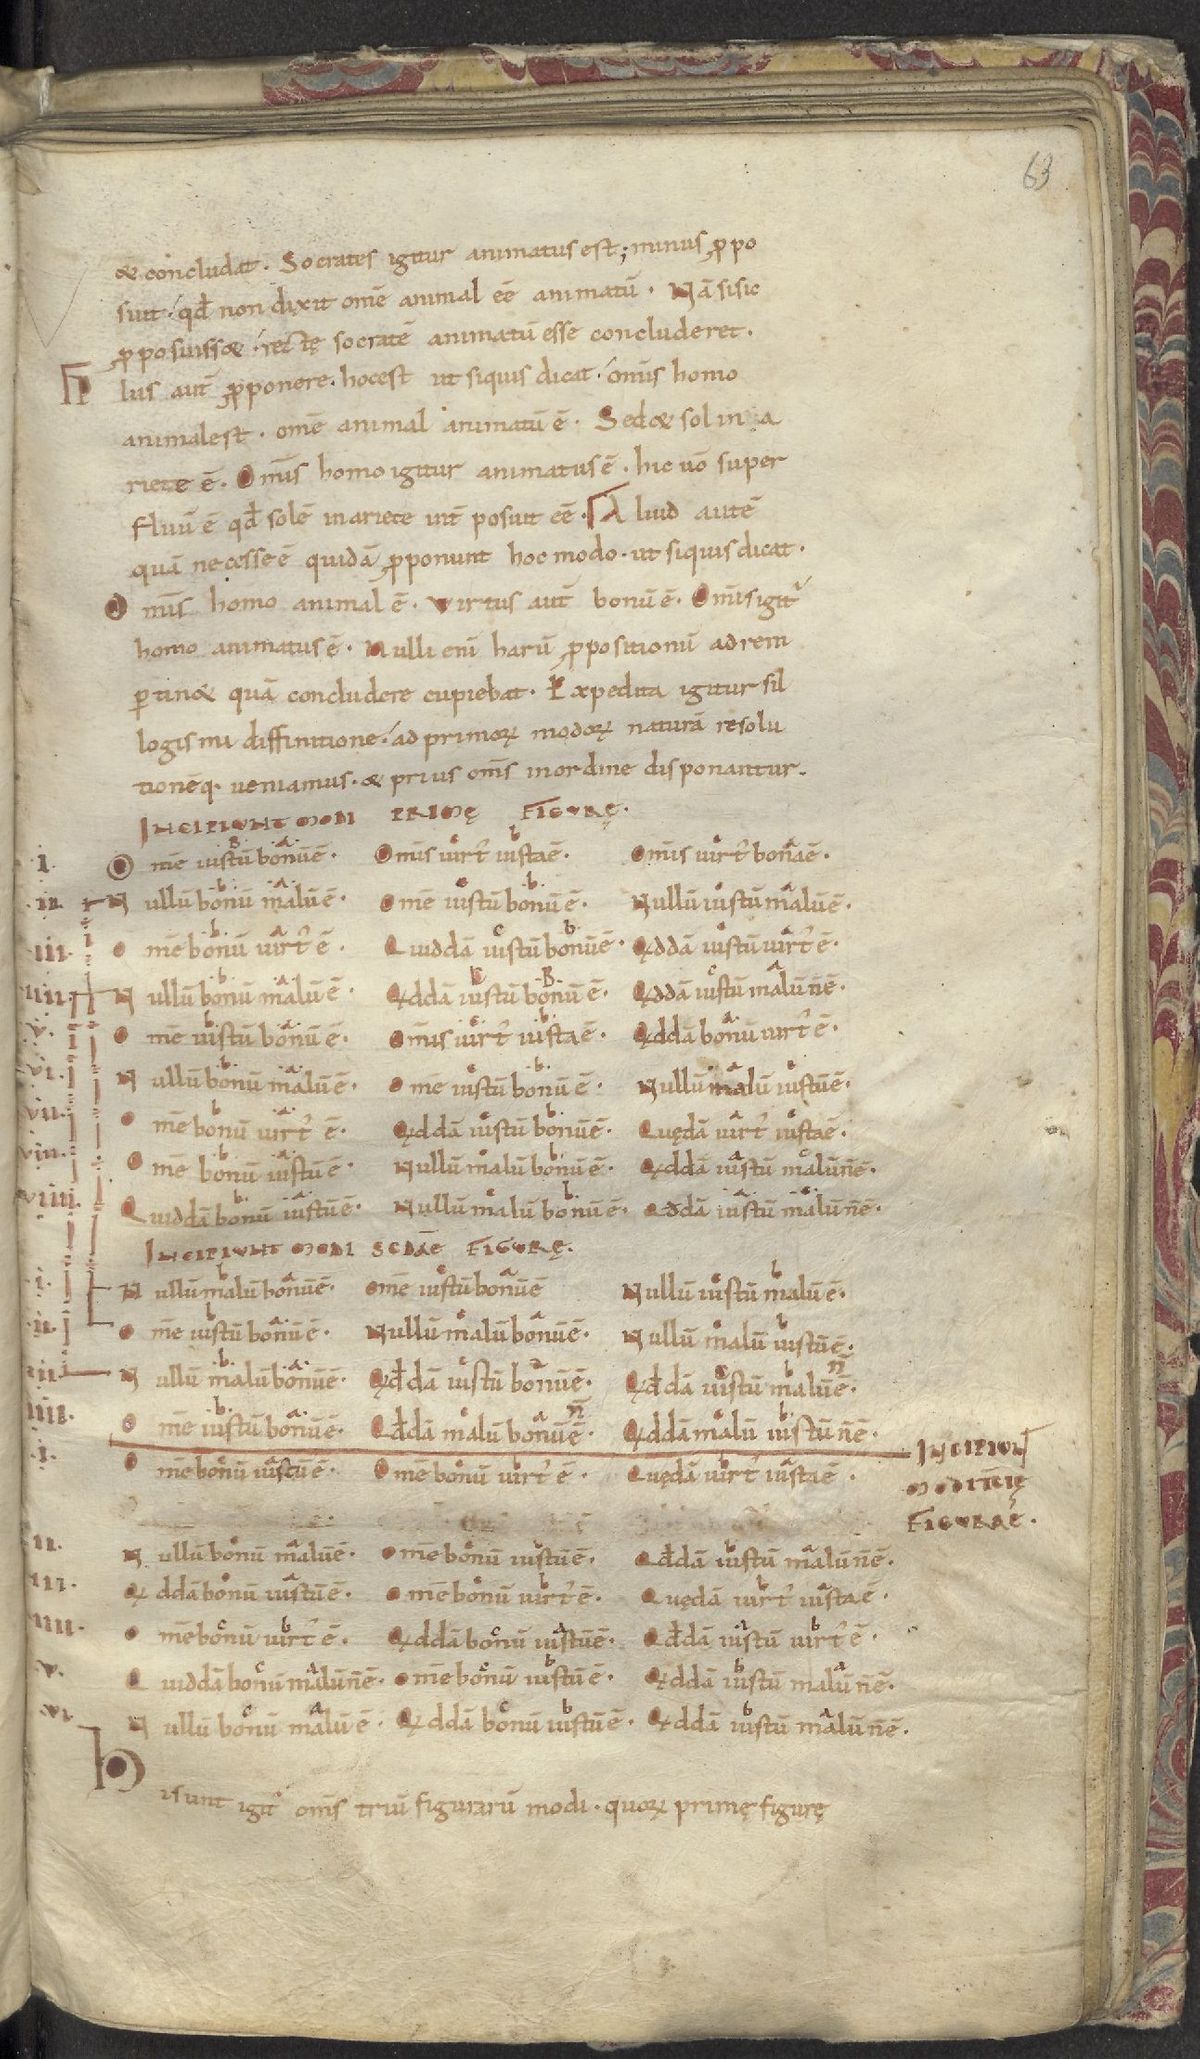 63
& concludat. Socrates igitur animatus est; minus ꝓpo
suit. qđ non dixit om̄e animal eē animatū. Nā si sic
ꝓposuiss&. rectę socratē animatū esse concluderet.
lus aut̄ ꝓponere. hoc est ut siquis dicat. om̄is homo
animal est. om̄e animal animatū ē. Sed & sol in a
riete ē. Om̄is homo igitur animatus ē. hic uō super
fluū ē qđ solē in ariete int̄ posuit eē. Aliud autē
quā necesse ē quidā ꝓponunt hoc modo. ut siquis dicat.
Om̄is homo animal ē. Virtus aut̄ bonū ē. Om̄is igit̄
homo animatus ē. Nulli eni harū ꝓpositionū ad rem
ꝑtin& quā concludere cupiebat. Expedita igitur sil
logismi diffinitione. ad primoꝝ modoꝝ naturā resolu
tionēq. ueniamus. & prius om̄s in ordine disponantur.
INCIPIUNT MODI PRIMĘ FIGURĘ.
.i. Om̄e iustū bonū ē. Om̄is uirt̄ iusta ē. Om̄is uirt̄ bona ē.
.ii. Nullū bonū malū ē. Om̄e iustū bonū ē. Nullū iustū malū ē.
.iii. Om̄e bonū uirt̄ ē. Quiddā iustū bonū ē. Qddā iustū uirt̄ ē.
.iiii. Nullū bonū malū ē. Qddā iustū bonū ē. Qddā iustū malū n̄ ē.
.v. Om̄e iustū bonū ē. Om̄is uirt̄ iusta ē. Qddā bonū uirt̄ ē.
.vi. Nullū bonū malū ē. Om̄e iustū bonū ē. Nullū malū iustū ē.
.vii. Om̄e bonū uirt̄ ē. Qddā iustū bonū ē. Quędā uirt̄ iusta ē.
.viii. Om̄e bonū iustū ē. Nullū malū bonū ē. Qddā iustū malū n̄ ē.
.viiii. Quiddā bonū iustū ē. Nullū malū bonū ē. Qddā iustū malū n̄ ē.
INCIPIUNT MODI SCDAE FIGURĘ.
.i. Nullū malū bonū ē. Om̄e iustū bonū ē Nullū iustū malū ē.
.ii. Om̄e iustū bonū ē. Nullū malū bonū ē. Nullū malū iustū ē.
.iii. Nullū malū bonū ē. Qđdā iustū bonū ē. Qđdā iustū malū n̄ ē.
.iiii. Om̄e iustū bonū ē. Qđdā malū bonū n̄ ē. Qddā malū iustū n̄ ē.
INCIPIUNT
MODI
FIGURAE.
.i. Om̄e bonū iustū ē. Om̄e bonū uirt̄ ē. Quędā uirt̄ iusta ē.
.ii. Nullū bonū malū ē. Om̄e bonū iustū ē. Qđdā iustū malū n̄ ē.
.iii. Qddā bonū iustū ē. Om̄e bonū uirt̄ ē. Quędā uirt̄ iusta ē.
.iiii. Om̄e bonū uirt̄ ē. Qddā bonū iustū ē. Qđdā iustū uirt̄ ē.
.v. Quiddā bonū malū n̄ ē. Om̄e bonū iustū ē. Qddā iustū malū n̄ ē.
.vi. Nullū bonū malū ē. Qddā bonū iustū ē. Qddā iustū malū n̄ ē.
Hi sunt igit̄ om̄s triū figurarū modi. quoꝝ primę figurę